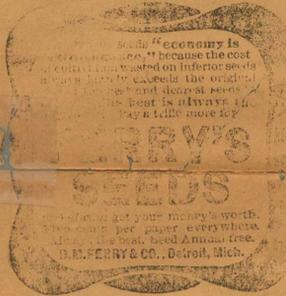 seeds "economy is
" because the cost
of cultivation wasted on inferior seeds
always largely exceeds the original
and dearest seeds
best is always the
pay a trifle more for
FERRY'S
SEEDS
and always get your money's worth.
Five cents per paper everywhere.
Always the best. Seed Annual free.
D.M.FERRY & CO., Detroit, Mich.